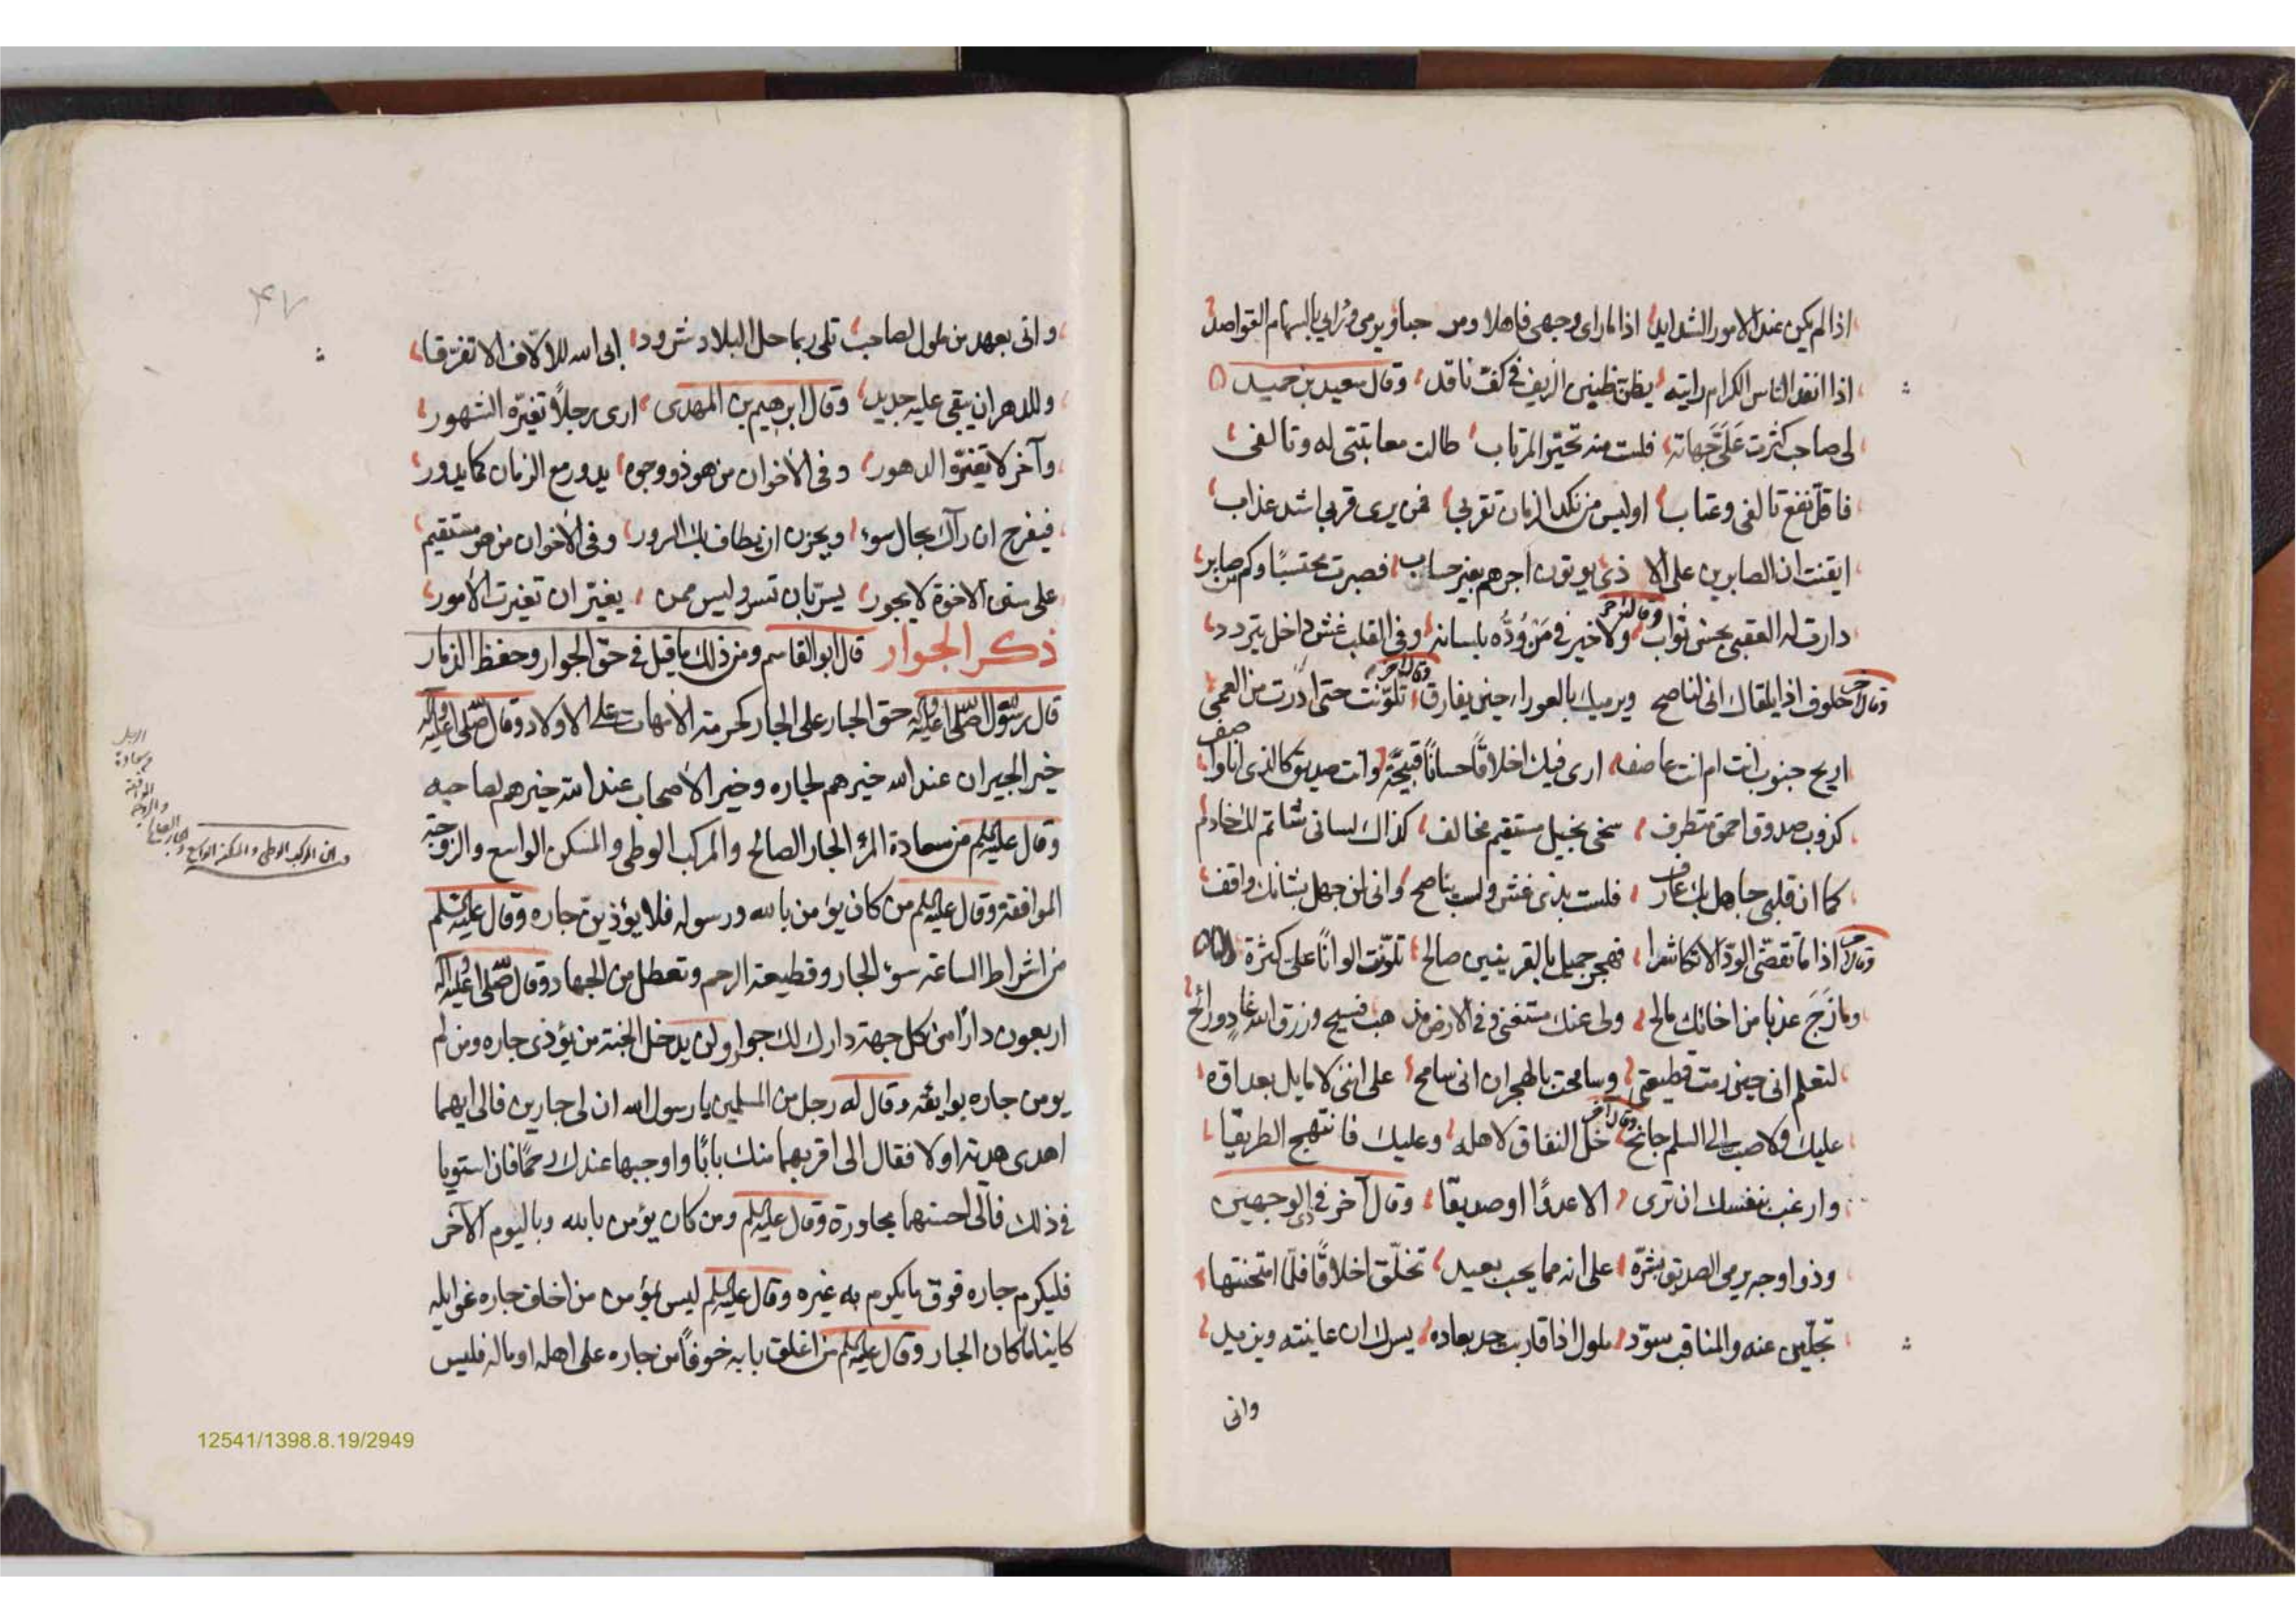 اذا لم يكن عند الامور الشدايد اذا ما رای وجهی فاهلا ومر حبا ويرمی ورائی بالسهام القواصد
اذا انتقد الناس الكرام رايته يظن ظنين الزيف فی كف ناقد وقال سعيد بن حميد
لی صاحب كثرت علی جهاته فلت منه تحير المرتاب طالت معاتبتی له وتالفی
فاقل نفع تالفی وعتاب اوليس من نكد الزمان تقربی فمن يری قربی اشد عذاب
ايقنت ان الصابرين علی الا ذی يوتون اجرهم بغير حساب فصبرت محتسبًا وكم من صابر
دارت له العقبی بحسن ثواب وقال آخر ولا خير فی من ودّه بلسانه وفی القلب غش داخل يتردد
وقال آخر حلوف اذا يلقاك انی لناصح ويرميك بالعوراء حين يفارق وقال آخر تلونت حتی ادرت من العمی
اريح جنوب انت ام انت عاصف اری فيك اخلاقًا حسانًا قبيحًة وانت صديق كالذی انا واصف
كذوب صدوق احمق متطرف سخی بخيل مستقيم مخالف كذاك لسانی شاتم لك خادم
كما ان قلبی جاهل بك عارف فلست بذی غش ولست بناصح وانی لمن جهل بشانك واقف
وقال آخر اذا ما تقضّی الودّ الا تكاشرا فهجر جميل بالقرينين صالح تلونت الوانًا علی كثرة
وما زج عذبا من اخائك مالح ولی عنك مستغنی وفی الارض مذ هب فسيح ورزق الله غادٍ ورائح
لتعلم انی حين رمت قطيعتی وسامحت بالهجران انی سامح علی اننی لا مايل بعداوة
عليك ولا صب الی السلم جانح وقال آخر خل النفاق لاهله وعليك فانتهج الطريقا
وارغب بنفسك ان تری الا عدوًا او صديقا وقال آخر فی ذی الوجهين
وذو اوجه يرمی الصديق بشرّه علی انه مما يحب بعيد تخلّق اخلاقًا فلمّا امتحنتها
تجلّين عنه والمناقب سوّد ملول اذا قاربت جد بعاده يسرك ان عاينته ويزيد
وانی
وانی بعهد من ملول لصاحب تلی ربما حل البلاد شرود ابی الله للألاف الا تفرّقا
وللدهر ان يبقی عليه جديد وقال ابرهيم بن المهدی اری رجلاً تغيّره الشهور
وآخر لا تغيّره الدهور وفی الأخوان من هو ذو وجوه يدور مع الزمان كما يدور
فيفرح ان رآك بحال سوء ويحزن ان يطاف بك السرور وفی الأخوان من هو مستقيم
علی سنن الاخوة لا يجور يسرّ بان تسر وليس ممن يغير ان تغيرت الأمور
ذكر الجوار قال ابو القاسم ومن ذلك ما قيل فی حق الجوار وحفظ الذمار
قال رسول الله صلی الله عليه وآله حق الجار علی الجار كحرمة الأمهات علی الاولاد وقال صلی الله عليه وآله
خير الجيران عند الله خيرهم لجاره وخير الأصحاب عند الله خيرهم لصاحبه
وقال عليه السلم من سعادة المرء الجار الصالح والمركب الوطی والمسكن الواسع والزوجة
الموافقة وقال عليه السلم من كان يؤمن بالله ورسوله فلا يؤذين جاره وقال عليه السلم
من اشراط الساعة سوء الجار وقطيعة الرحم وتعطل من الجهاد وقال صلی الله عليه وآله
اربعون دارًا من كل جهة دارك لك جوار ولن يدخل الجنة من يؤذی جاره ومن لم
يومن جاره بوائقه وقال له رجل من المسلمين يا رسول الله ان لی جارين فالی ايهما
اهدی هدية اولا فقال الی اقربهما منك بابًا واوجبها عندك رحمًا فان استويا
فی ذلك فالی احسنهما مجاورة وقال عليه السلم ومن كان يؤمن بالله وباليوم الآخر
فليكرم جاره فوق ما يكرم به غيره وقال عليه السلم ليس بمؤمن من اخاف جاره غوايله
كاينا ما كان الجار وقال عليه السلم من اغلق بابه خوفًا من جاره علی اهله او ماله فليس
۴۷
12541/1398.8.19/2949